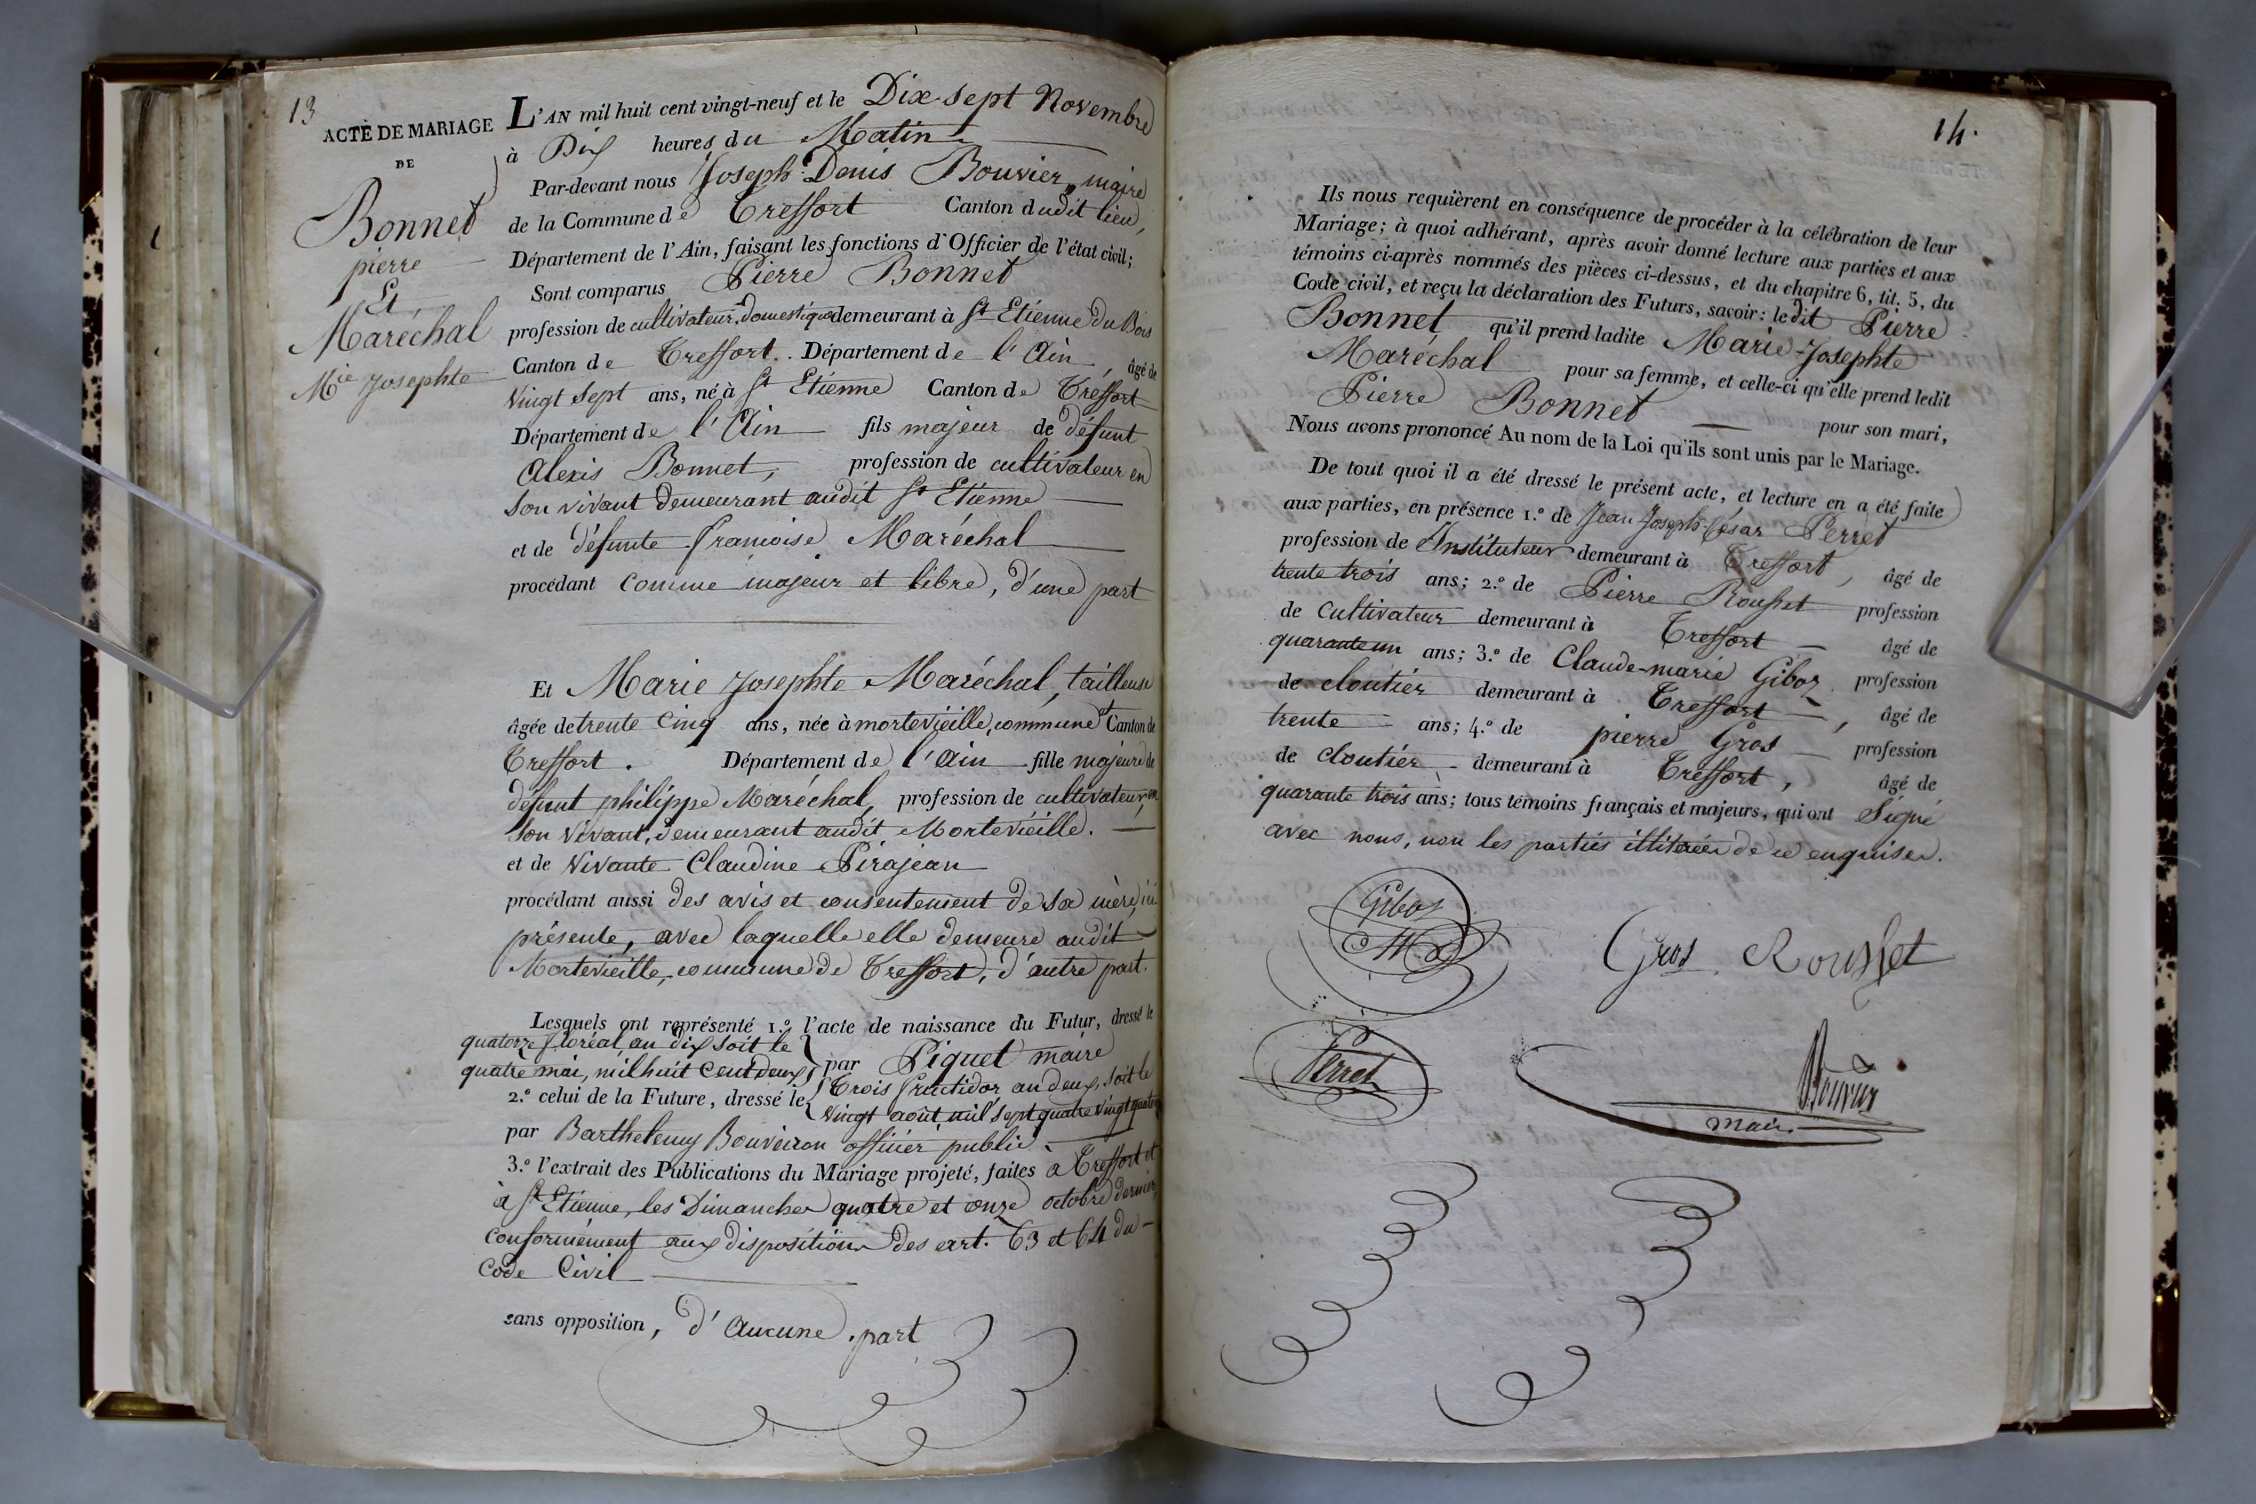 13
ACTE DE MARIAGE
DE
Bonnet
pierre
Et
Maréchal
Mie Josephte
L'AN mil huit cent vingt-neuf et le Dix-sept Novembre
à Dix heures du Matin
Par-devant nous Joseph Denis Bouvier, maire
de la Commune de Treffort Canton dudit lieu,
Département de l'Ain, faisant les fonctions d'Officier de l'état civil;
Sont comparus Pierre Bonnet
profession de cultivateur domestique demeurant à St Etienne du Bois
Canton de Treffort. Département de l'Ain âgé de
vingt sept ans, né à St Etienne Canton de Treffort
Département de l'Ain fils majeur de défunt
Alexis Bonnet, profession de cultivateur en
son vivant demeurant audit St Etienne
et de défunte francoise Maréchal
procédant comme majeur et libre, d'une part
Et Marie Josephte Maréchal, tailleuse
âgée de trente cinq ans, née à mortevieille, commune et Canton de
Treffort. Département de l'Ain fille majeure de
défunt philippe Maréchal, profession de cultivateur, en
son vivant, demeurant audit Mortevieille.
et de vivante Claudine Pirajean
procédant aussi des avis et consentement de sa mère, ici
présente, avec laquelle elle demeure audit
Mortevieille, commune de Treffort, d'autre part.
Lesquels ont représenté 1.º l'acte de naissance du Futur, dressé le
quatorze floréal an dix soit le
quatre mai, mil huit cent deux, par Piquet maire
2.º celui de la Future, dressé le Trois fructidor an deux, soit le
vingt août mil sept quatre vingt quatorze
par Barthelemy Bouveiron officier public
3.º l'extrait des Publications du Mariage projeté, faites à Treffort et
à St Etienne, les Dimanches quatre et onze octobre dernier
conformément aux dispositions des art. 63 et 64 du
Code Civil
sans opposition, d'aucune part
14.
Ils nous requièrent en conséquence de procéder à la célébration de leur
Mariage; à quoi adhérant, après avoir donné lecture aux parties et aux
témoins ci-après nommés des pièces ci-dessus, et du chapitre 6, tit. 5, du
Code civil, et reçu la déclaration des Futurs, savoir: ledit Pierre
Bonnet qu'il prend ladite Marie-Josephte
Maréchal pour sa femme, et celle-ci qu'elle prend ledit
Pierre Bonnet pour son mari,
Nous avons prononcé Au nom de la Loi qu'ils sont unis par le Mariage.
De tout quoi il a été dressé le présent acte, et lecture en a été faite
aux parties, en présence 1.º de Jean Joseph-César Perret
profession de Instituteur demeurant à Treffort, âgé de
trente trois ans; 2.º de Pierre Rousset profession
de cultivateur demeurant à Treffort âgé de
quarante un ans; 3.º de Claude-marie Giboz profession
de cloutier demeurant à Treffort, âgé de
trente ans; 4.º de pierre Gros profession
de cloutier demeurant à Treffort, âgé de
quarante trois ans; tous témoins français et majeurs, qui ont signé
avec nous, non les parties illitérées de ce enquises.
Giboz
Gros Rousset
Perret
Bouvier
maire